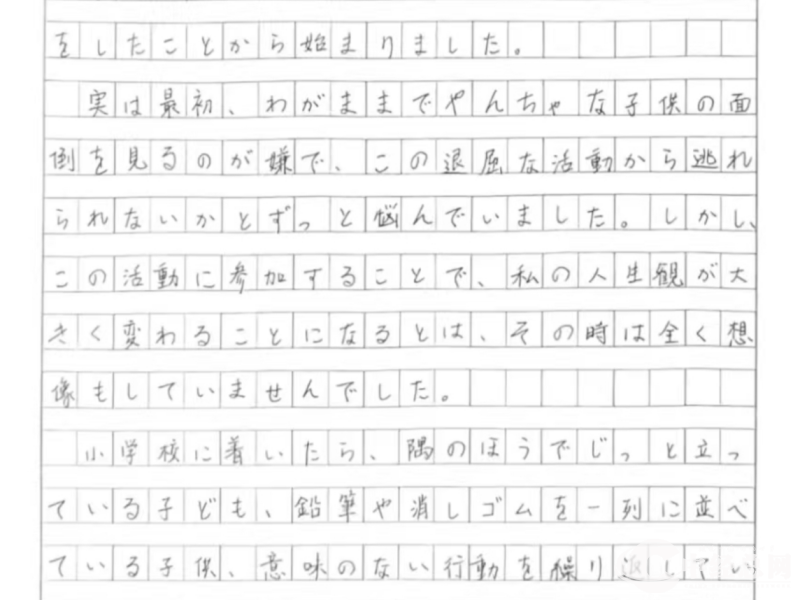 をしたことから始まりました。
実は最初、わがままでやんちゃな子供の面
倒を見るのが嫌で、この退屈な活動から逃れ
られないかとずっと悩んでいました。しかし、
この活動に参加することで、私の人生観が大
きく変わることになるとは、その時は全く想
像もしていませんでした。
小学校に着いたら、隅のほうでじっと立っ
ている子ども、鉛筆や消しゴムを一列に並べ
ている子供、意味のない行動を繰り返してい